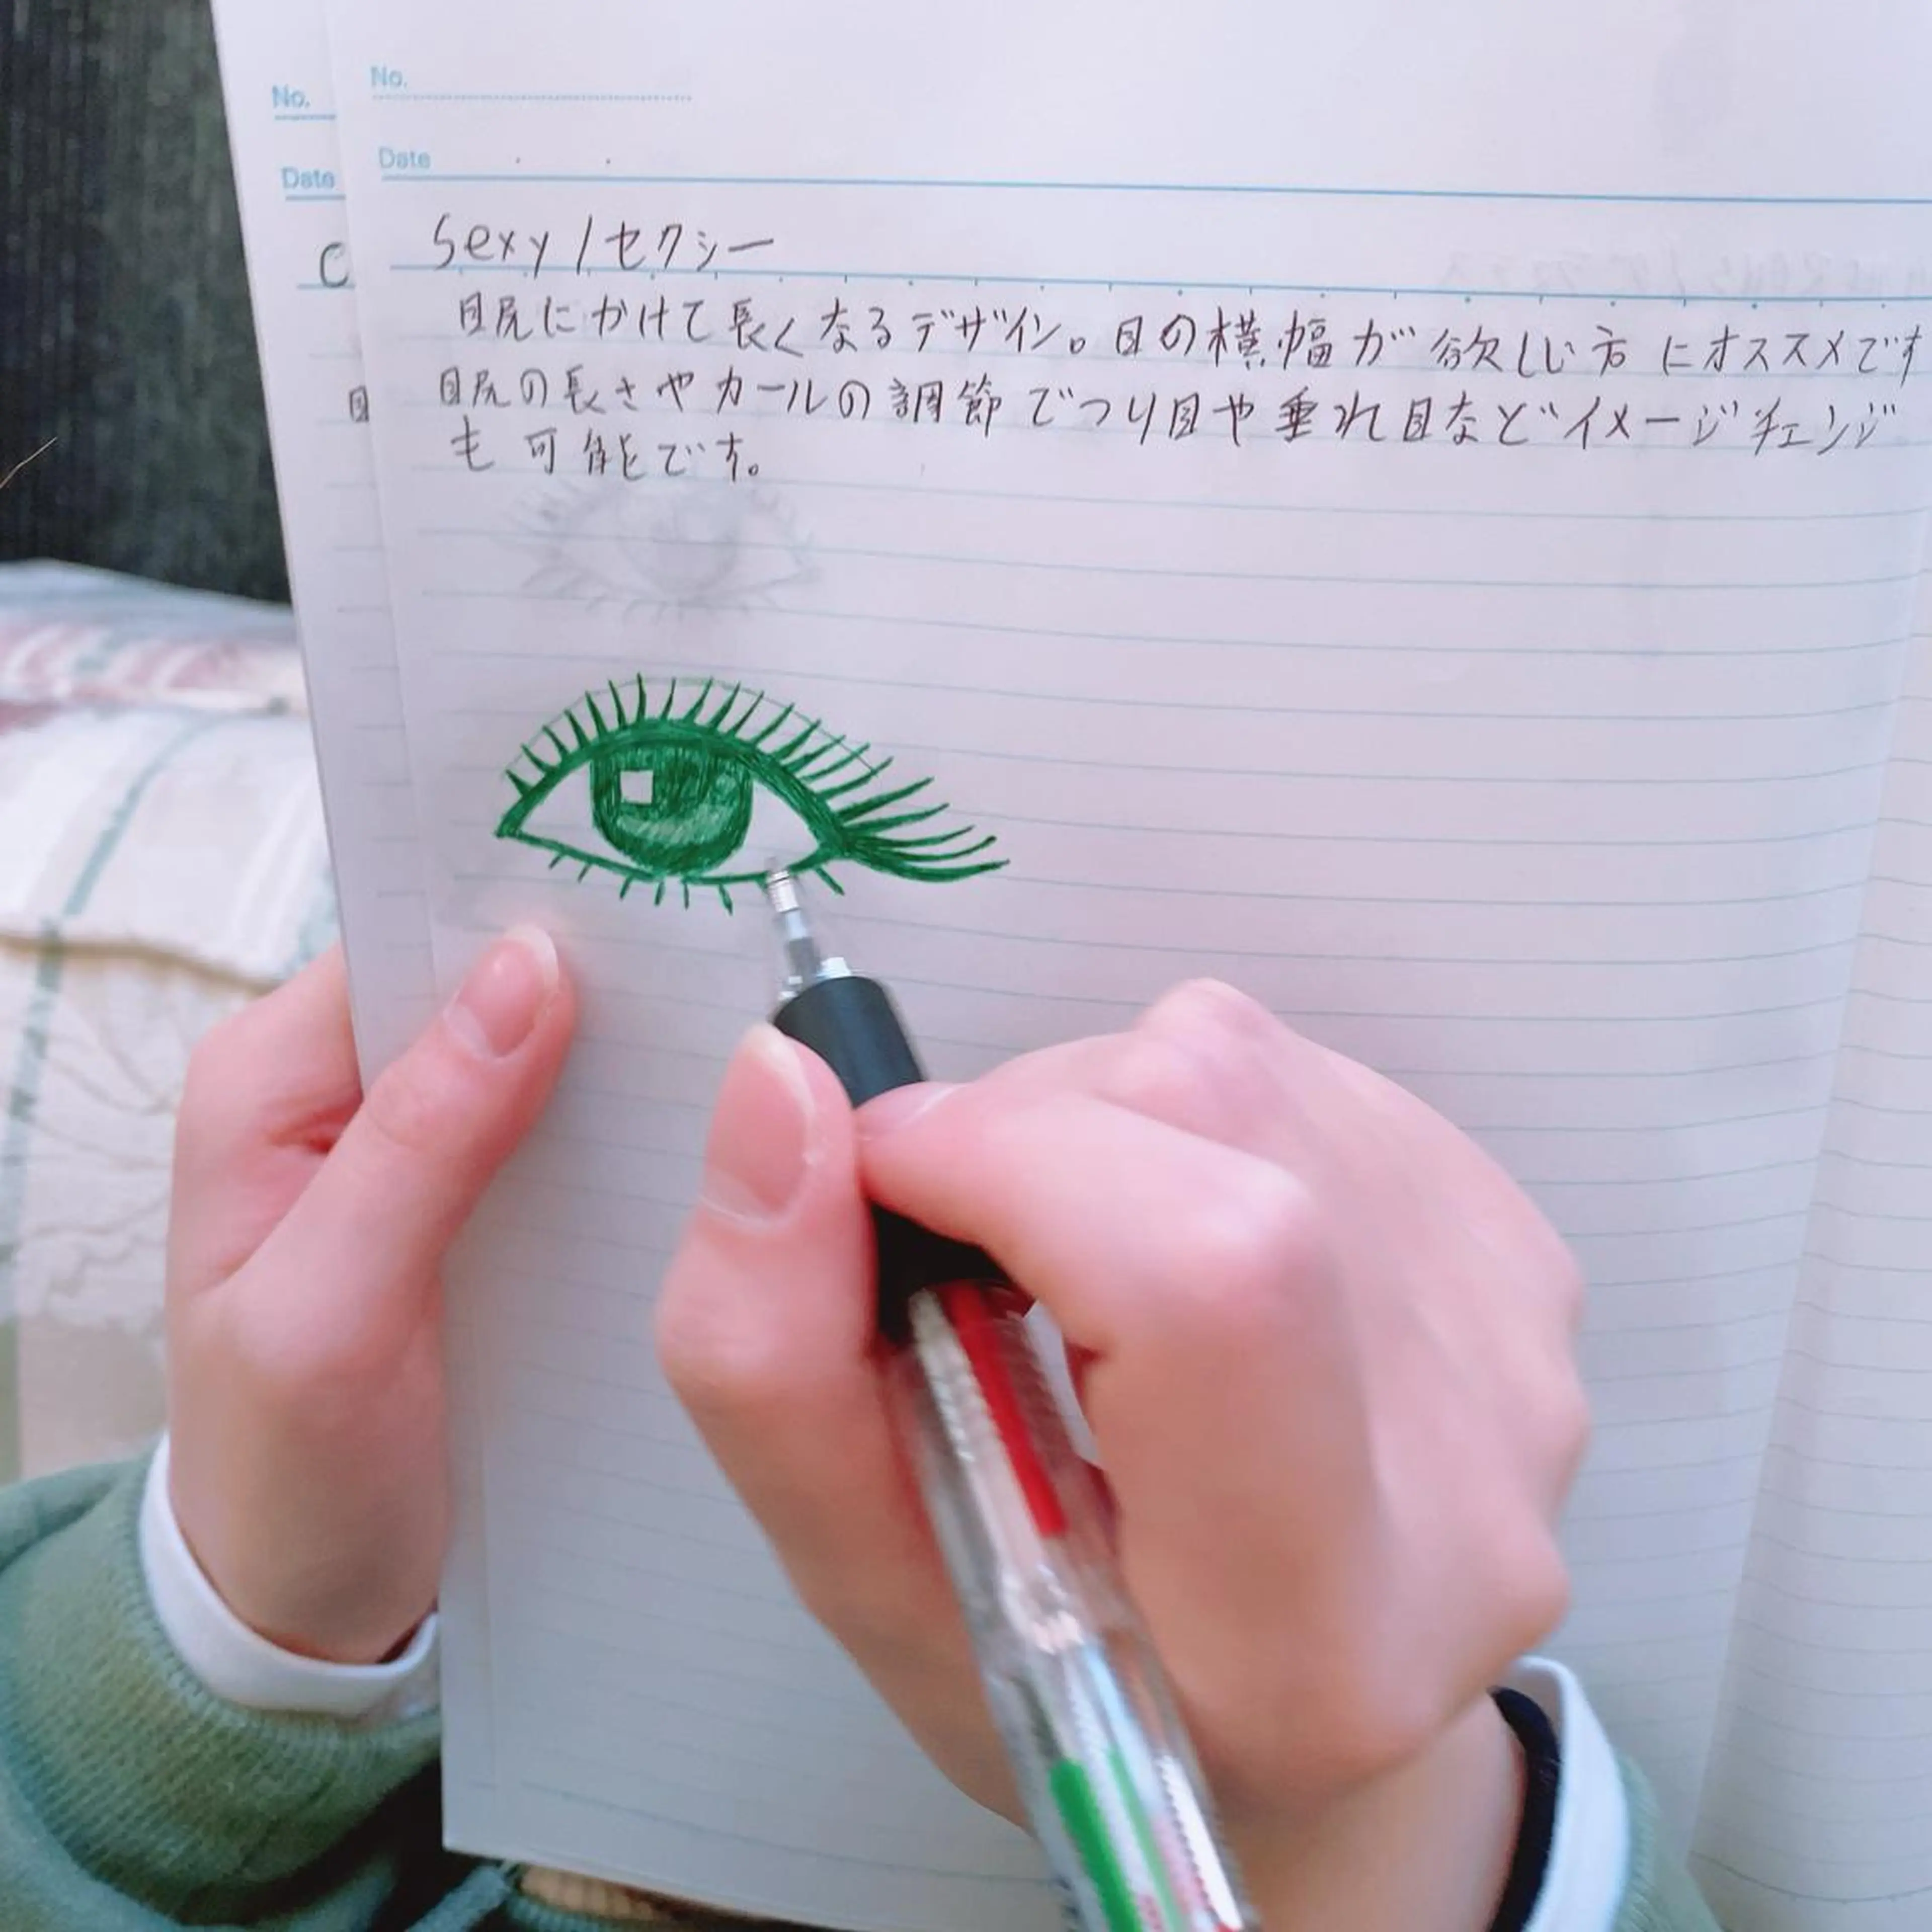 No.
Date
C
目
No.
Date
Sexy / セクシー
目尻にかけて長くなるデザイン。目の横幅が欲しい方にオススメです
目尻の長さやカールの調節でつり目や垂れ目などイメージチェンジ
も可能です。